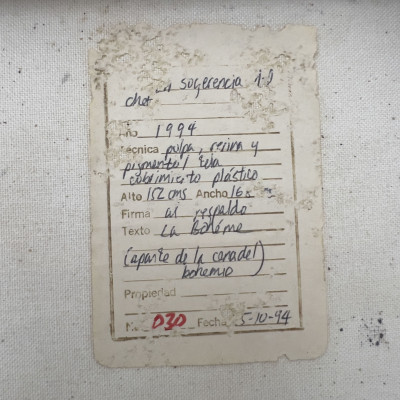 sugerencia
Año 1994
Técnica pulpa, resina y
pigmento/tela
cubrimiento plástico
Alto 152 cms Ancho 16
Firma al respaldo
Texto La Bohéme
(aparte de la cena del
bohemio
Propiedad
No. 030 Fecha 5-10-94